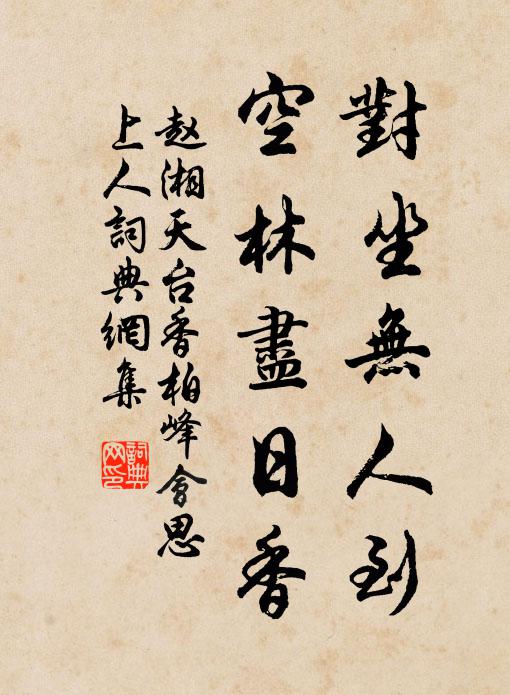 對坐無人到
空林盡日香
赵湘天台香柏峰会思
上人詞典網集
詞典
网印